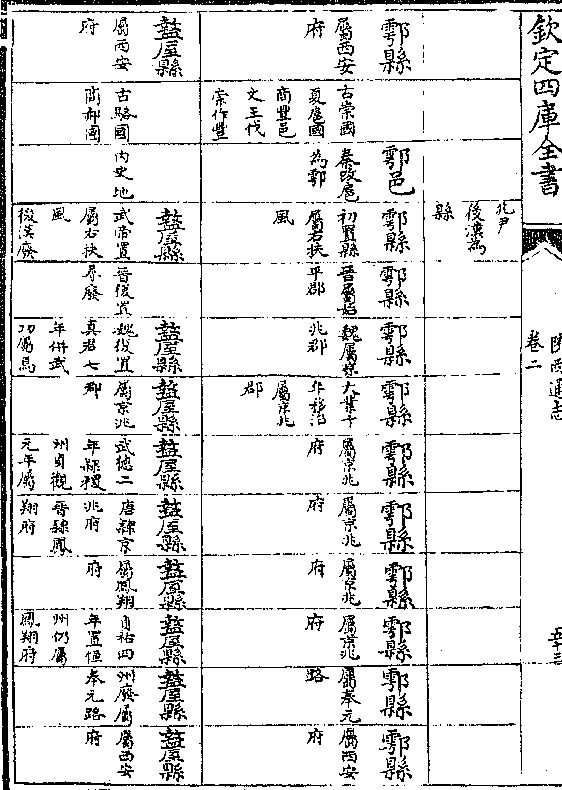 欽定四庫全書
陝西通志
卷二
兆尹
後漢為
縣
鄠縣
屬西安
府
古崇國
夏扈國
商豐邑
文王伐
崇作豐
鄠邑
秦改扈
為鄠
鄠縣
初置縣
屬右扶
風
鄠縣
晉屬始
平郡
鄠縣
魏屬京
兆郡
鄠縣
大業十
年移治
屬京兆
郡
鄠縣
屬京兆
府
鄠縣
屬京兆
府
鄠縣
屬京兆
府
鄠縣
屬京兆
府
鄠縣
屬奉元
路
鄠縣
屬西安
府
盩厔縣
屬西安
府
古駱國
商郝國
內史地
盩厔縣
武帝置
屬右扶
風
後漢廢
晉復置
尋廢
盩厔縣
魏復置
真君七
年併武
功屬焉
盩厔縣
屬京兆
郡
盩厔縣
武德二
年隸稷
州貞觀
元年屬
盩厔縣
唐隸京
兆府
晉隸鳳
翔府
盩厔縣
屬鳳翔
府
盩厔縣
貞祐四
年置恒
州仍屬
鳳翔府
盩厔縣
州廢屬
奉元路
盩厔縣
屬西安
府